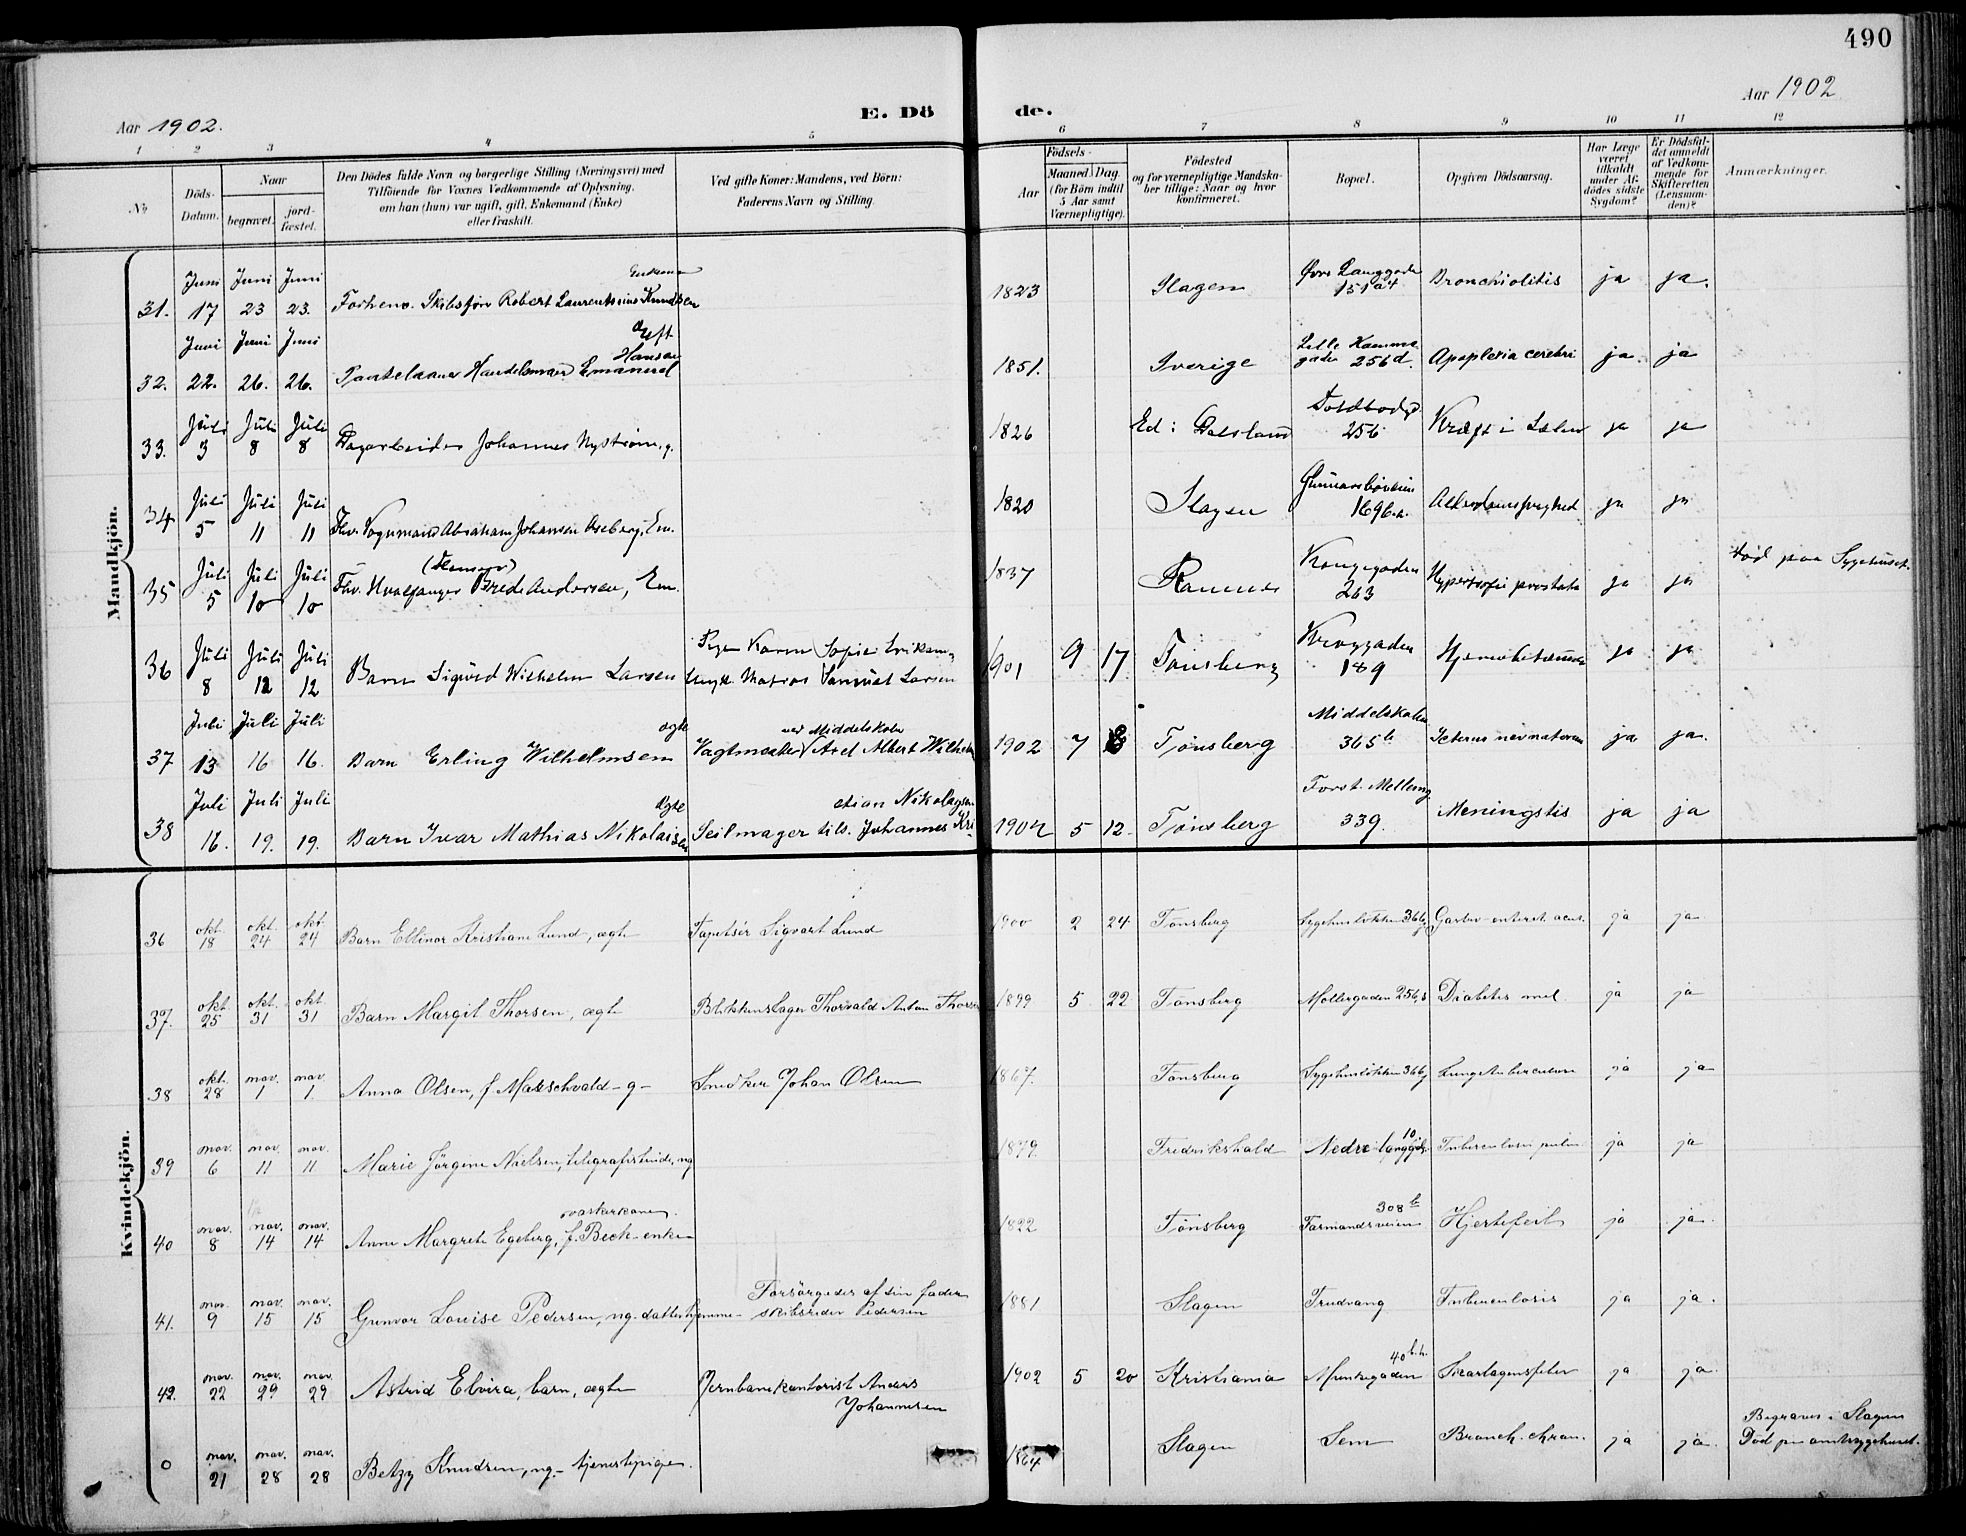 490
Aar 1902.
E. Dö
de.
Aar 1902
1 2 3 4 5 6 7 8 9 10 11 12
No
Döds-Datum.
Naar
begravet.
jord-fæstet.
Den Dödes fulde Navn og borgerlige Stilling (Næringsvei) med
Tilföiende for Voxnes Vedkommende af Oplysning,
om han (hun) var ugift, gift, Enkemand (Enke)
eller fraskilt.
Ved gifte Koner: Mandens, ved Börn:
Faderens Navn og Stilling.
Födsels-
Aar
Maaned Dag.
(for Börn indtil
5 Aar samt
Værnepligtige).
Födested
og for værnepligtige Mandska-
ber tillige: Naar og hvor
konfirmeret.
Bopæl.
Opgiven Dödsaarsag.
Har Læge
været
tilkaldt
under Af-
dödes sidste
Sygdom?
Er Dödsfal-
det anmeldt
af Vedkom-
mende for
Skifteretten
(Lensman-
den)?
Anmærkninger.
Mandkjön.
31. Juni 17 Juni 23 Juni 23. Forhenv. Skibsför Robert Laurentssius Knudsen 1823 Slagen Övre Langgade 151 a4 Bronchiolitis ja ja.
32. Juni 22. Juni 26. Juni 26. Handelsmand Emanuel Hansen gift 1851. Sverige Lille 256d. Apoplexia cerebri ja. ja
33. Juli 3 Juli 8 Juli 8 Dagarbeider Johannes Nystrøm, g. 1826 Ed i Dalsland Toldbodgd. 256 Kræft i ja ja
34 Juli 5 Juli 11 Juli 11 Fhv. Vognmand Abraham Johansen Aseberg, Em. 1820 Slagen 169 b.a. Alderdomssvaghed ja ja
35 Juli 5 Juli 10 Juli 10 Fhv. Hvalfanger Brede Andersen, Em. 1837 Ramnes Kongegaden 263 Hypertrofi prostata ja ja Död paa Sygehuset.
36 Juli 8 Juli 12 Juli 12 Barn Sigurd Wilhelm Larsen Pige Karen Sofie Eriksen, Matros Samuel Larsen 1901 9 17 Tönsberg 189 ja ja
37 Juli 13 Juli 16 Juli 16. Barn Erling Wilhelmsen ægte Vagtmester ved Middelskolen Axel Albert Wilhelm 1902 7 Tønsberg Middelskolen 365 b Icterus neonatorum ja ja.
38 Juli 16. Juli 19. Juli 19. Barn Ivar Mathias Nikolaisen ægte Seilmager tils. Johannes Kristian Nikolaysen 1902 5 12. Tønsberg 339. Meningitis ja ja
Kvindekjön.
36 okt. 18 okt. 24 okt. 24 Barn Ellinor Kristiane Lund, ægte Tapetsér Sigvart Lund 1900 2 24 Tønsberg Sygehusløkken 366j Gastro-enterit acut. ja ja
37. okt 25 okt. 31 okt. 31 Barn Margit Thorsen, ægte Blikkenslager Thorvald Anton Thorsen 1899 5 22 Tønsberg Møllergaden 256,8 Diabetes mel. ja ja
38 okt. 28 nov. 1 nov. 1 Anna Olsen, f. Marschvald - g - Snedker Johan Olsen 1867. Tønsberg Sygehusløkken 366j Lungetuberculose ja ja
39 nov. 6 nov. 11 nov. 11 Marie Jörgine Nielsen, telegrafistinde, ug 1879. Fredrikshald Nedre langgd. 10 Tuberculosis pulm. ja ja
40 nov. 8 nov. 14 nov. 14 Anne Margrete Egeberg, f. Beck - enke - vaskerkone. 1822 Tønsberg Farmandsveien 308 b Hjertefeil ja ja.
41. nov. 9 nov. 15 nov. 15 Gunvor Louise Pedersen, ug. datter hjemme - Forsörgedes af sin fader skibsreder Pedersen 1881 Slagen Trudvang Tuberculosis ja ja.
42. nov. 22 nov. 29 nov. 29 Astrid Elvira, barn, ægte Jernbanekontorist Anders Johannesen 1902 5 20 Kristiania Munkegaden 40 b.h. Scarlagensfeber ja ja.
0 nov. 21 nov. 28 nov. 28 Betzy Knudsen, ug. - tjenestepige. 1864 Slagen Sem Bronch. chron. ja ja. Begraves i Slagen Död paa amtssygehuset.